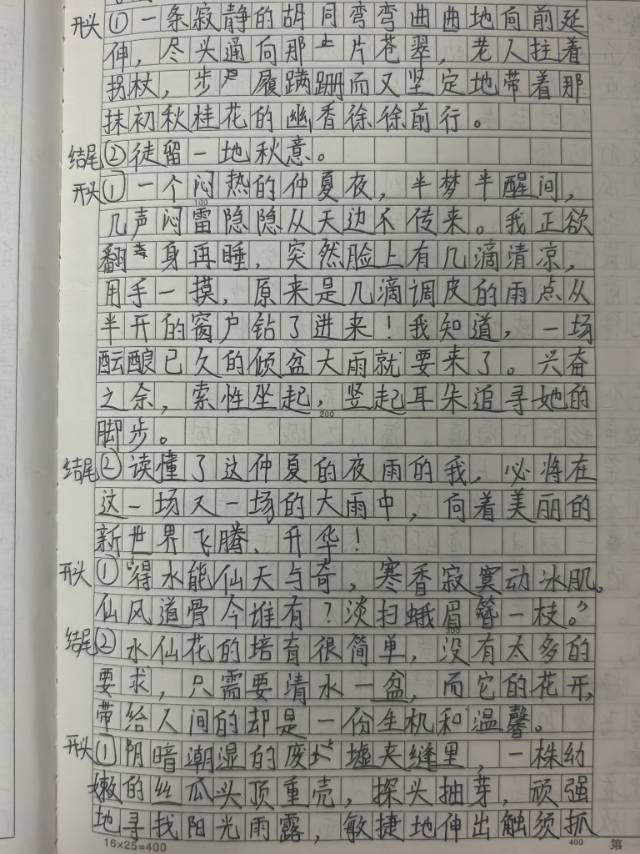 开头①一条寂静的胡同弯弯曲曲地向前延
伸，尽头通向那一片苍翠，老人拄着
拐杖，步履蹒跚而又坚定地带着那
抹初秋桂花的幽香徐徐前行。
结尾②徒留一地秋意。
开头①一个闷热的仲夏夜，半梦半醒间，
100
几声闷雷隐隐从天边不传来。我正欲
翻身再睡，突然脸上有几滴清凉，
用手一摸，原来是几滴调皮的雨点从
半开的窗户钻了进来！我知道，一场
酝酿已久的倾盆大雨就要来了。兴奋
之余，索性坐起，竖起耳朵追寻她的
200
脚步。
结尾②读懂了这仲夏的夜雨的我，必将在
这一场又一场的大雨中，向着美丽的
新世界飞腾、升华！
开头①“得水能仙天与奇，寒香寂寞动冰肌。
仙风道骨今谁有？淡扫蛾眉簪一枝。”
300
结尾②水仙花的培育很简单，没有太多的
要求，只需要清水一盆，而它的花开，
带给人间的却是一份生机和温馨。
开头①阴暗潮湿的废墟夹缝里，一株幼
嫩的丝瓜头顶重壳，探头抽芽，顽强
地寻找阳光雨露，敏捷地伸出触须抓
16×25=400
400
第